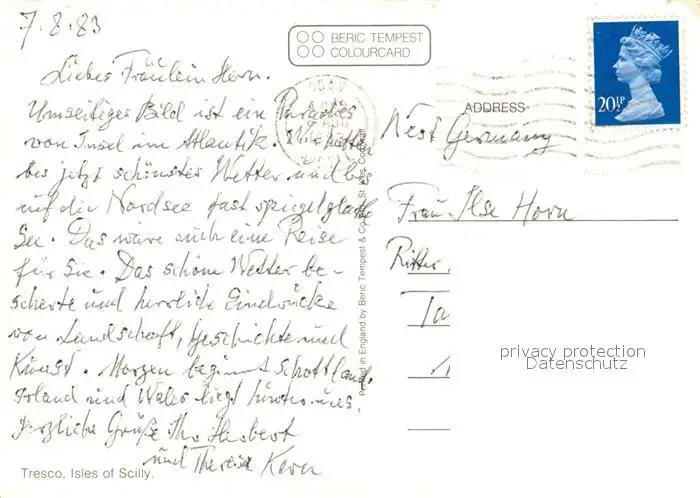 7.8.83
BERIC TEMPEST
COLOURCARD
Liebes Fräulein Horn.
Umseitiges Bild ist ein Paradies
von Insel im Atlantik. Wir hatten
bis jetzt schönstes Wetter und bis
auf die Nordsee fast spiegelglatte
See. Das wäre auch eine Reise
für Sie. Das schöne Wetter be-
scherte uns herrliche Eindrücke
von Landschaft, Geschichte und
Kunst. Morgen beginnt Schottland.
Irland und Wales liegt hinter uns.
Herzliche Grüße Ihr Herbert
und Therese Kern
Tresco, Isles of Scilly.
Printed in England by Beric Tempest & Co. St. Ives Cornwall
ADDRESS
20½P
West Germany
Frau Ilse Horn
Ritter
Ta
privacy protection
Datenschutz